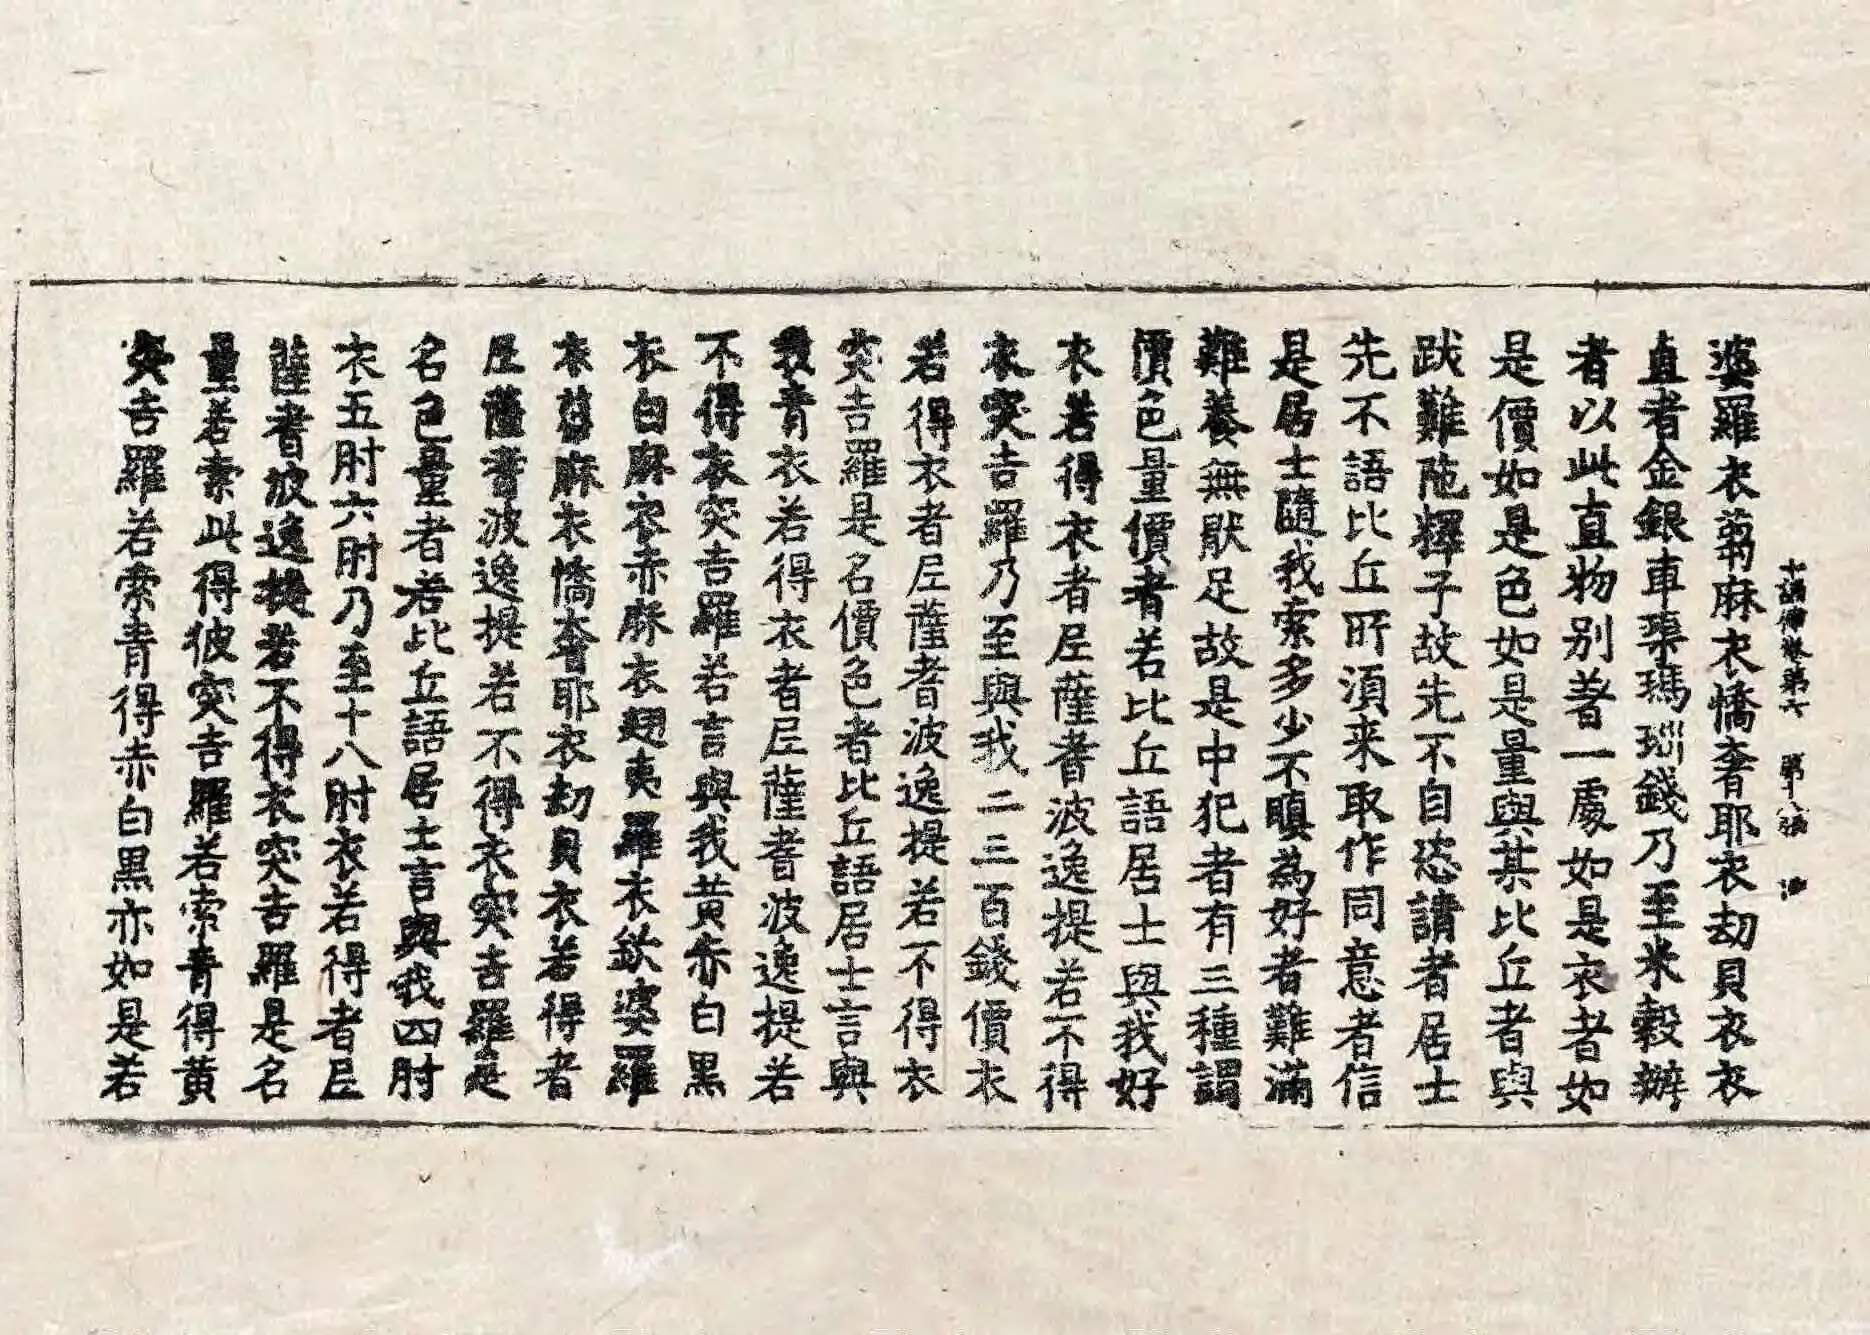 十誦律卷第六 第十八張 沙
婆羅衣蒭麻衣憍奢耶衣刧貝衣衣
直者金銀車𤦲瑪瑙錢乃至米穀辦
者以此直物別著一處如是衣者如
是價如是色如是量與某比丘者與
跋難陁釋子故先不自恣請者居士
先不語比丘所湏来取作同意者信
是居士隨我索多少不瞋為好者難滿
難養無猒足故是中犯者有三種謂
價色量價者若比丘語居士與我好
衣若得衣者尼薩耆波逸提若不得
衣突吉羅乃至與我二三百錢價衣
若得衣者尼薩耆波逸提若不得衣
突吉羅是名價色者比丘語居士言與
我青衣若得衣者尼薩耆波逸提若
不得衣突吉羅若言與我黃赤白黑
衣白麻衣赤麻衣翅夷羅衣欽婆羅
衣蒭麻衣憍奢耶衣刧貝衣若得者
尼薩耆波逸提若不得衣突吉羅是
名色量者若比丘語居士言與我四肘
衣五肘六肘乃至十八肘衣若得者尼
薩耆波逸提若不得衣突吉羅是名
量若索此得彼突吉羅若索青得黃
突吉羅若索青得赤白黑亦如是若